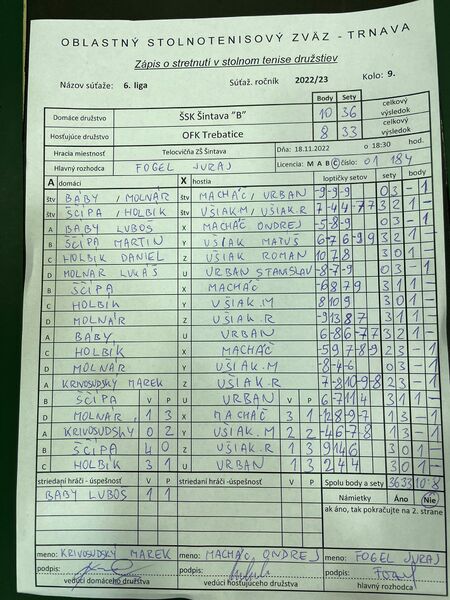 OBLASTNÝ STOLNOTENISOVÝ ZVÄZ - TRNAVA
Zápis o stretnutí v stolnom tenise družstiev
Názov súťaže: 6. liga Súťaž. ročník 2022/23 Kolo: 9.
Body Sety celkový výsledok
Domáce družstvo ŠSK Šintava "B" 10 36
Hosťujúce družstvo OFK Trebatice 8 33 celkový výsledok
Hracia miestnosť Telocvičňa ZŠ Šintava DŇA: 18.11.2022 o 18:30 hod.
Hlavný rozhodca FOGEL JURAJ Licencia: M A B C číslo: 01 184
A domáci X hostia loptičky setov sety body
štv BABY / MOLNÁR štv MACHÁČ / URBAN -9-9-9 03 -1
štv ŠČÍPA / HOLBÍK štv UŠIAK.M / UŠIAK.R 7-44-77 32 1-
A BABY LUBOŠ X MACHÁČ ONDREJ -5-8-9 03 -1
B ŠČÍPA MARTIN Y UŠIAK MATÚŠ 6-76-99 32 1-
C HOLBÍK DANIEL Z UŠIAK ROMAN 1078 30 1-
D MOLNÁR LUKÁŠ U URBAN STANISLAV -8-7-9 03 -1
B ŠČÍPA X MACHÁČ -6879 31 1-
C HOLBÍK Y UŠIAK.M 8109 30 1-
D MOLNÁR Z UŠIAK.R -91387 31 1-
A BABY U URBAN 6-86-77 32 1-
C HOLBÍK X MACHÁČ -597-8-9 23 -1
D MOLNÁR Y UŠIAK.M -8-4-6 03 -1
A KRIVOSUDSKÝ MAREK Z UŠIAK.R 7-810-9-8 23 -1
B ŠČÍPA V P U URBAN V P 6-7114 31 1-
D MOLNÁR 1 3 X MACHÁČ 3 1 -128-9-7 13 -1
A KRIVOSUDSKÝ 0 2 Y UŠIAK.M 2 2 -46-7-8 13 -1
B ŠČÍPA 4 0 Z UŠIAK.R 1 3 9146 30 1-
C HOLBÍK 3 1 U URBAN 1 3 244 30 1-
striedaní hráči -úspešnosť V P striedaní hráči -úspešnosť V P Spolu body a sety 36 33 10:8
BABY LUBOŠ 1 1 Námietky Áno Nie
ak áno, tak pokračujte na 2. strane
meno: KRIVOSUDSKÝ MAREK meno: MACHÁČ ONDREJ meno: FOGEL JURAJ
podpis: podpis: podpis:
vedúci domáceho družstva vedúci hosťujúceho družstva hlavný rozhodca